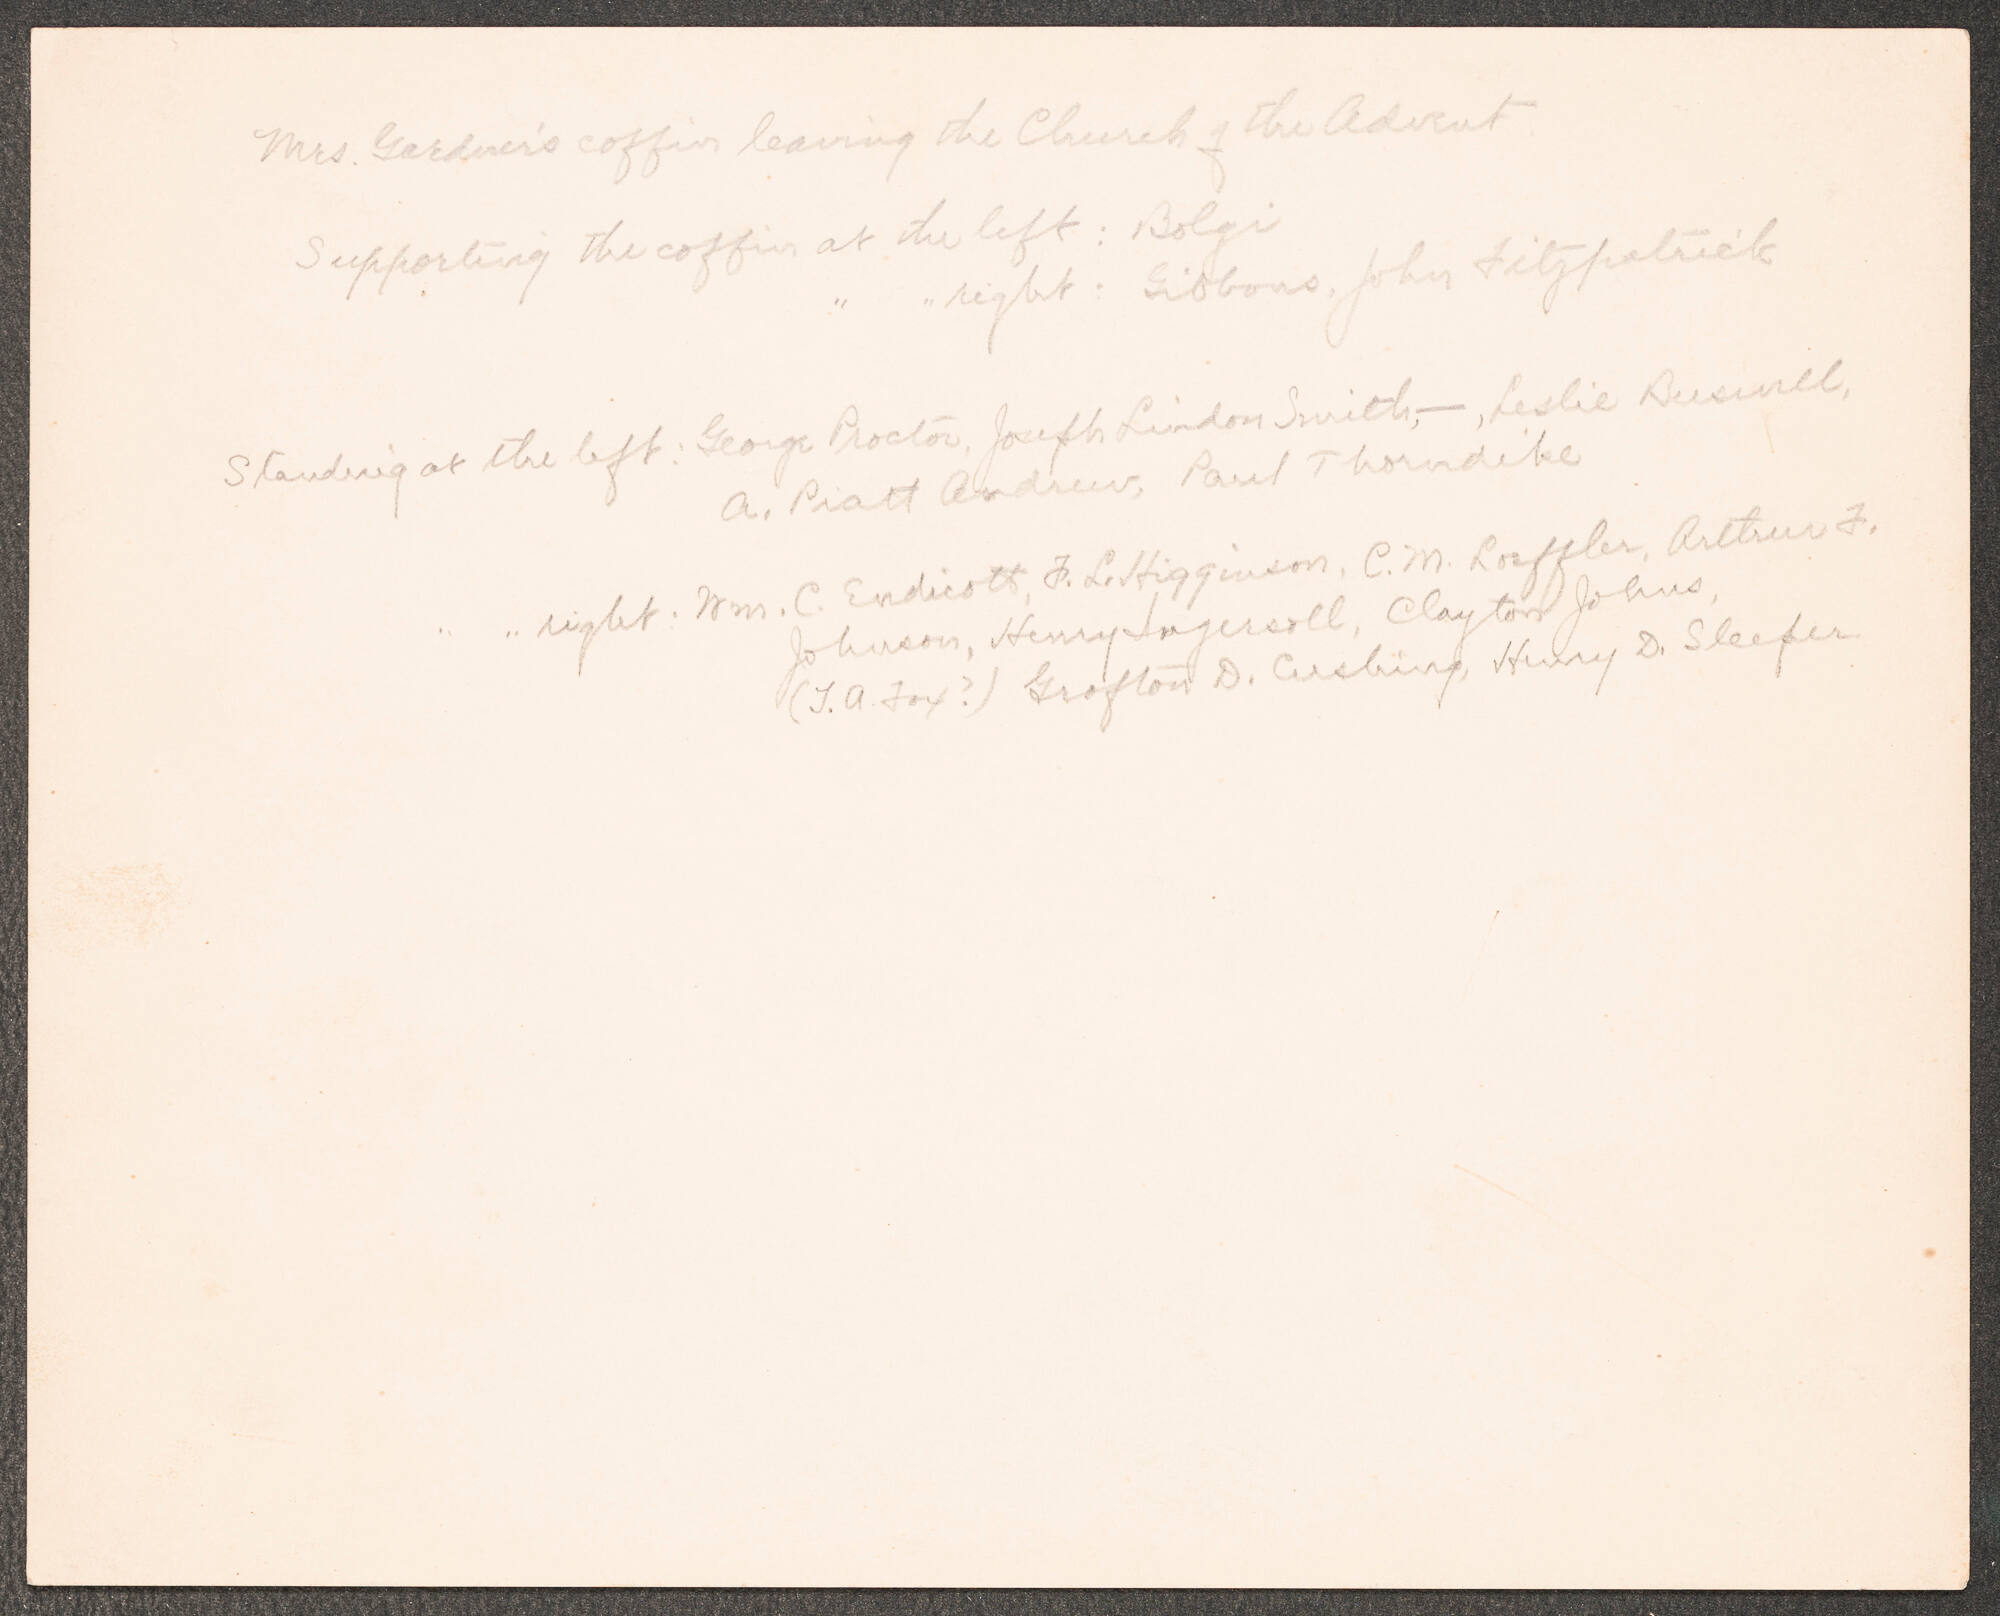 Mrs. Gardner's coffin leaving the Church of the Advent.
Supporting the coffin at the left: Bolgi
" " right: Gibbons, John Fitzpatrick
Standing at the left: George Proctor, Joseph Lindon Smith, —, Leslie Buswell,
A. Piatt Andrew, Paul Thorndike
" " right: Wm. C. Endicott, F. L. Higginson, C. M. Loeffler, Arthur F.
Johnson, Henry Ingersoll, Clayton Johns,
(T. A. Fox?) Grafton D. Cushing, Henry D. Sleeper